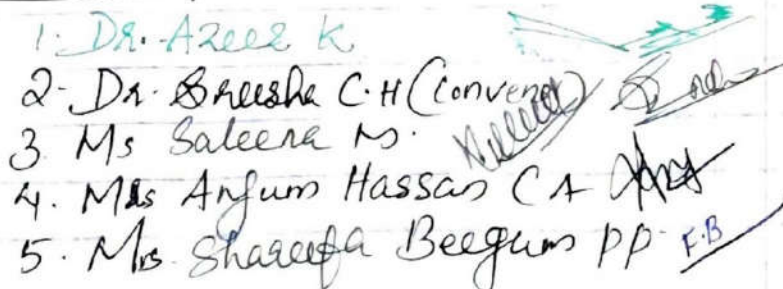 1. Dr. Azeez K
2. Dr. Sreesha C.H (Convener)
3. Ms Saleena M.
4. Mrs Anjum Hassan C A
5. Mrs. Shareefa Beegum PP. F.B